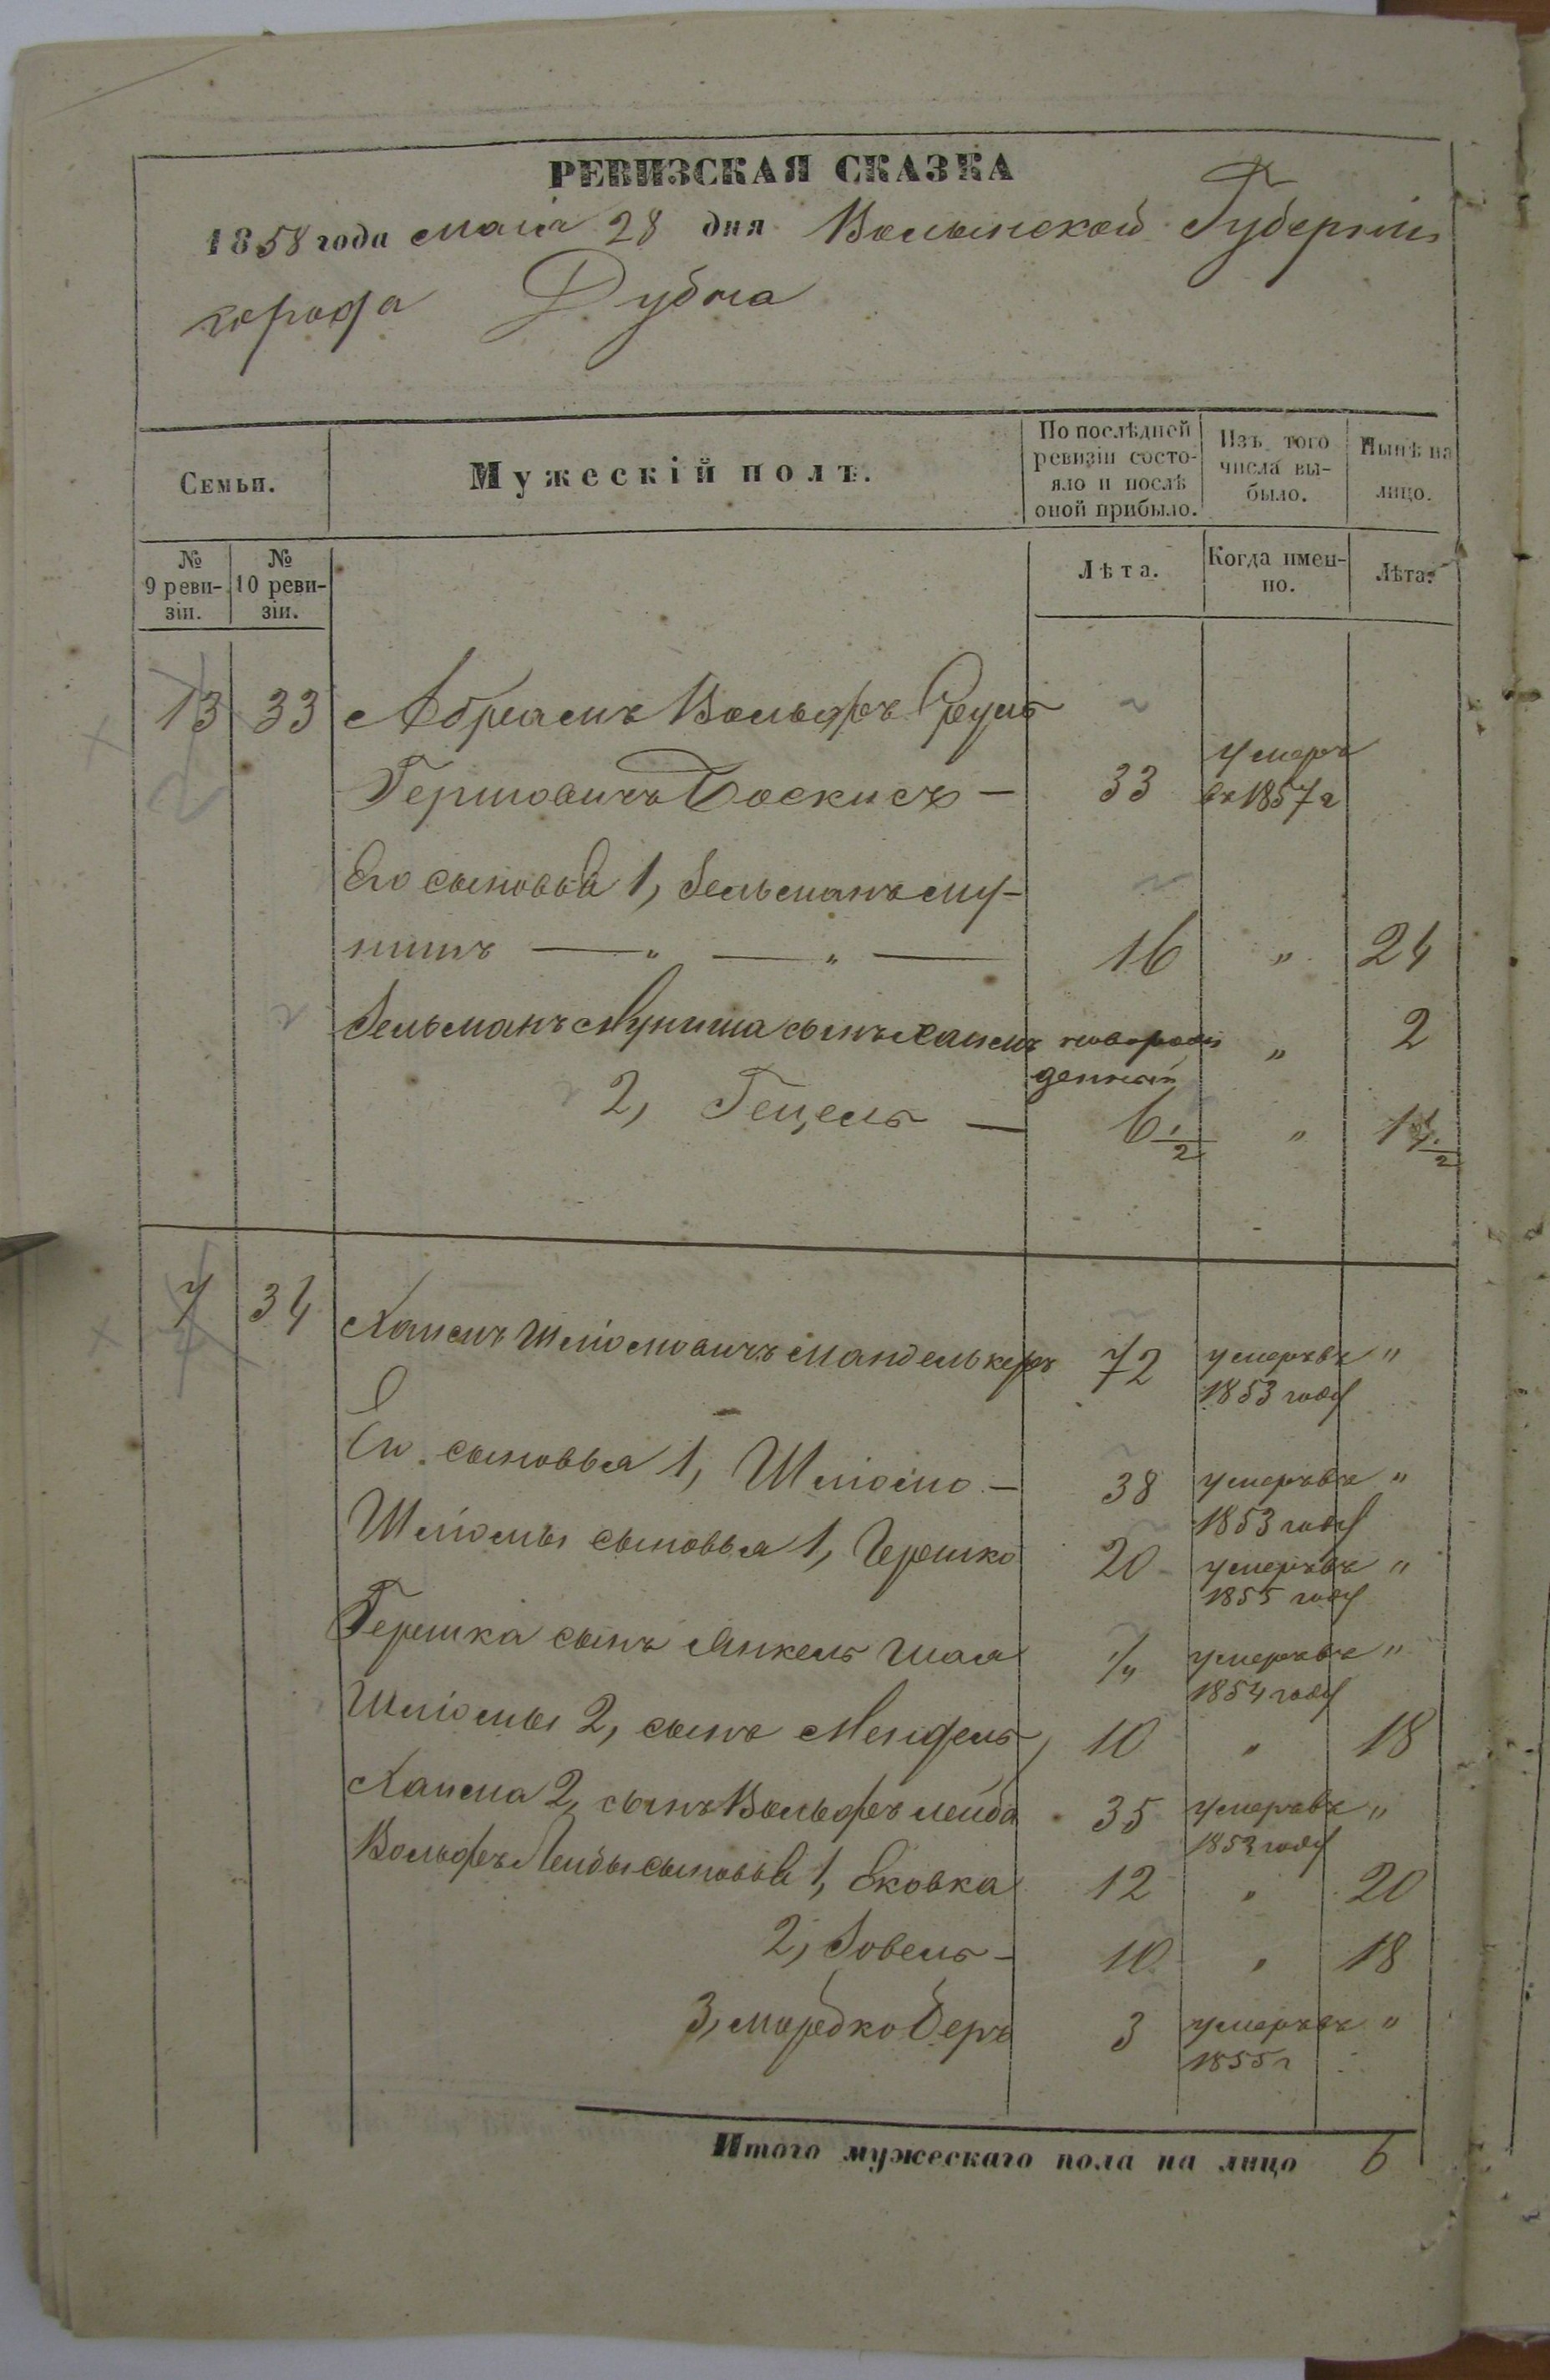 РЕВИЗСКАЯ СКАЗКА
1858 года маія 28 дня Волынской Губерніи
города Дубна
Семьи.
Мужескій полъ.
По послѣдней ревизіи состо-
яло и послѣ оной прибыло.
Изъ того числа вы-
было.
Нынѣ на лицо.
№ 9 реви-
зіи.
№ 10 реви-
зіи.
Лѣта.
Когда имен-
но.
Лѣта.
13 33 Абрамъ Вольфъ
Гершовичъ 33 умеръ
въ 1857 г
Его сыновья 1, Зельманъ му-
нишъ — " — " — 16 " 24
Зельманъ Муниша сынъ Хаимъ новорож
денный " 2
2, Гецель — 6 1/2 "
7 34 Хаимъ Шліомовичъ Манделькеръ 72 умеръ въ "
1853 году
Его сыновья 1, Шліомо — 38 умеръ въ "
1853 году
Шліомы сыновья 1, Гершко 20 умеръ въ "
1855 году
Гершка сынъ Янкель умеръ въ "
1854 году
Шліомы 2, сынъ Мендель 10 " 18
Хаима 2, сынъ Вольфъ лейба 35 умеръ въ "
1853 году
Вольфъ Лейбы сыновья 1, Ековка 12 " 20
2, Зовель — 10 " 18
3, мордко Беръ 3 умеръ въ "
1855 г
Итого мужескаго пола на лицо 6